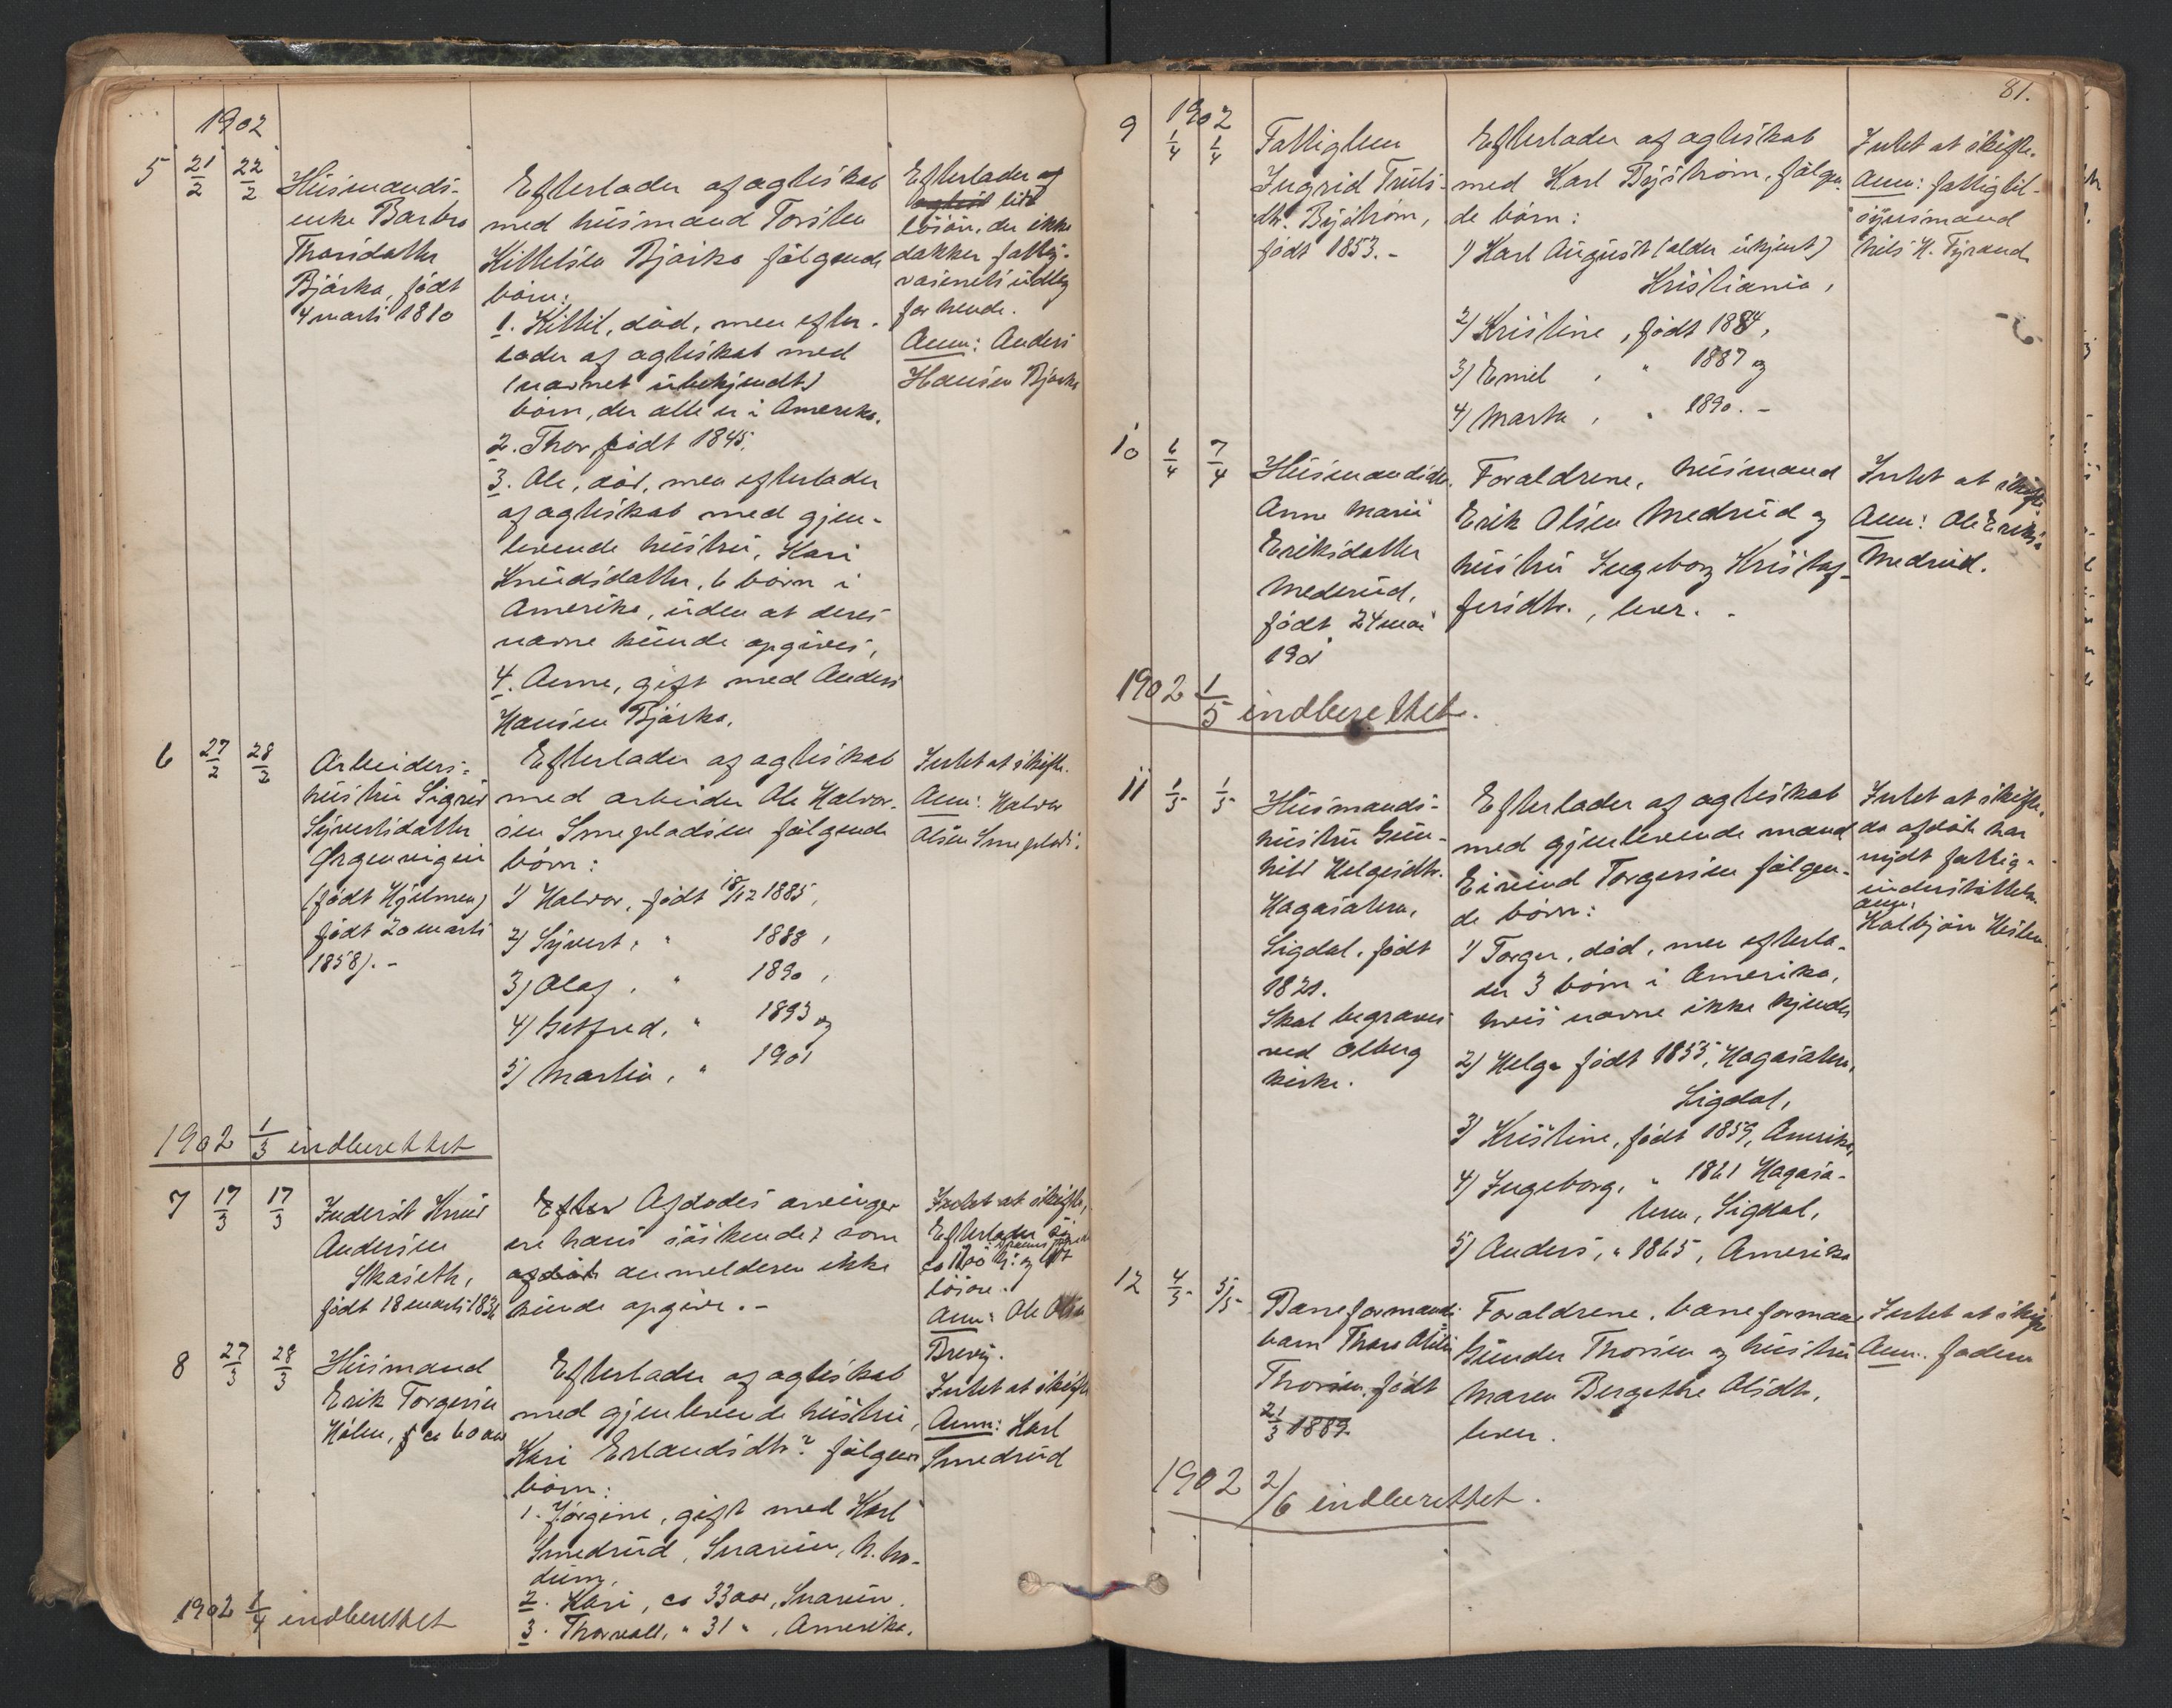 1902
5 21/2 22/2
Husmands-
enke Barbro
Thorsdatter
Bjørke, født
4 marts 1810
Efterlader af ægteskab
med husmand Torsten
Kittelsen Bjørke følgende
børn:
1. Kittil, død, men efter-
lader af ægteskab med
(navnet ubekjendt)
børn, der alle er i Amerika.
2. Thor, født 1845.
3. Ole, død, men efterlader
af ægteskab med gjen-
levende hustru, Kari
Knudsdatter, 6 børn i
Amerika, uden at deres
navne kunde opgives,
4. Anne, gift med Anders
Hansen Bjørke.
Efterlader af
lidt
løsøre, der ikke
dækker fattig-
væsenets udlæg
for hende.
Anm: Anders
Hansen Bjørke
6 27/2 28/2
Arbeiders-
hustru Sigrid
Syvertsdatter
(født Hjelmen)
født 20 marts
1858). -
Efterlader af ægteskab
med arbeider Ole Halvor-
sen Smepladsen følgende
børn:
1) Halvor, født 18/12 1885,
2) Syvert, " 1888,
3) Olaf, " 1890,
4) Gotfred, " 1893 og
5) Martin, " 1901
Intet at skifte.
Anm: Halvor
Olsen Smeplads.
1902 1/3 indberettet
7 17/3 17/3
Inderst Knud
Andersen
Skaseth,
født 18 marts 183
Efter Afdødes arvinger
ere hans søskende, som
afdøde anmelderen ikke
kunde opgive. -
Intet at skifte,
Efterlader
løsøre.
Anm: Ole Olsen
Brevig.
8 27/3 28/3
Husmand
Erik Torgersen
Hølen, f ca 60 aar
Efterlader af ægteskab
med gjenlevende hustru,
Kari Erlandsdtr? følgende
børn:
1. Jørgine, gift med Karl
Smedrud, Snarum, N. Mo-
dum,
2. Kari, ca 33 aar, Snarum.
3. Thorvald, " 31 ", Amerika.
Intet at skifte
Anm: Karl
Smedrud
1902 1/4 indberettet
81.
1902
9 1/4 1/4
Fattiglem
Ingrid Truls-
dtr. Byström,
født 1853. -
Efterlader af ægteskab
med Karl Byström, følgen-
de børn:
1) Karl August (alder ukjent)
Kristiania,
2) Kristine, født 1884,
3) Emil, " 1887 og
4) Marta, " 1890. -
Intet at skifte.
Anm: fattigtil-
synsmand
Nils H. Tyrand
10 6/4 7/4
Husmandsdtr.
Anne Marie
Eriksdatter
Mederud,
født 24 mai
1901
Forældrene, husmand
Erik Olsen Medrud og
hustru Ingeborg Kristof-
fersdtr., lever. -
Intet at skifte
Anm: Ole Eriksen
Medrud.
1902 1/5 indberettet.
11 1/5 1/5
Husmands-
hustru Gun-
hild Helgesdtr.
Hagasætern,
Sigdal, født
1821.
Skal begraves
ved Olberg
kirke.
Efterlader af ægteskab
med gjenlevende mand
Eivind Torgersen følgen-
de børn:
1) Torger, død, men efterla-
der 3 børn i Amerika,
hvis navne ikke kjendes
2) Helge født 1855, Hagasætern,
Sigdal,
3) Kristine, født 1859, Amerika,
4) Ingeborg, " 1861 Hagasæ-
tern, Sigdal,
5) Anders, " 1865, Amerika
Intet at skifte,
da afdøde har
nydt fattig-
understøttelse
anm.
Kolbjørn
12 4/5 5/5
Baneformands
barn Thora
Thorsen, født
21/3 1889
Forældrene, baneformand
Gunder Thorsen og hustru
Maren Bergethe Olsdtr,
lever.
Intet at skifte
Anm. faderen
1902 2/6 indberettet.